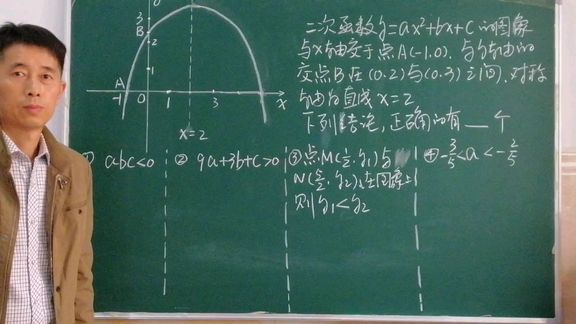 二次函数y=ax²+bx+c的图象
与x轴交于点A(-1,0), 与y轴的
交点B在(0,2)与(0,3)之间, 对称
轴为直线x=2
下列结论, 正确的有 __ 个
0
3
B
2
1
A
-1 0 1 3 x
x=2
① abc<0
② 9a+3b+c>0
③点M(½,y₁)与
N(5/2,y₂)在图象上
则y₁<y₂
④ -3/5<a<-2/5